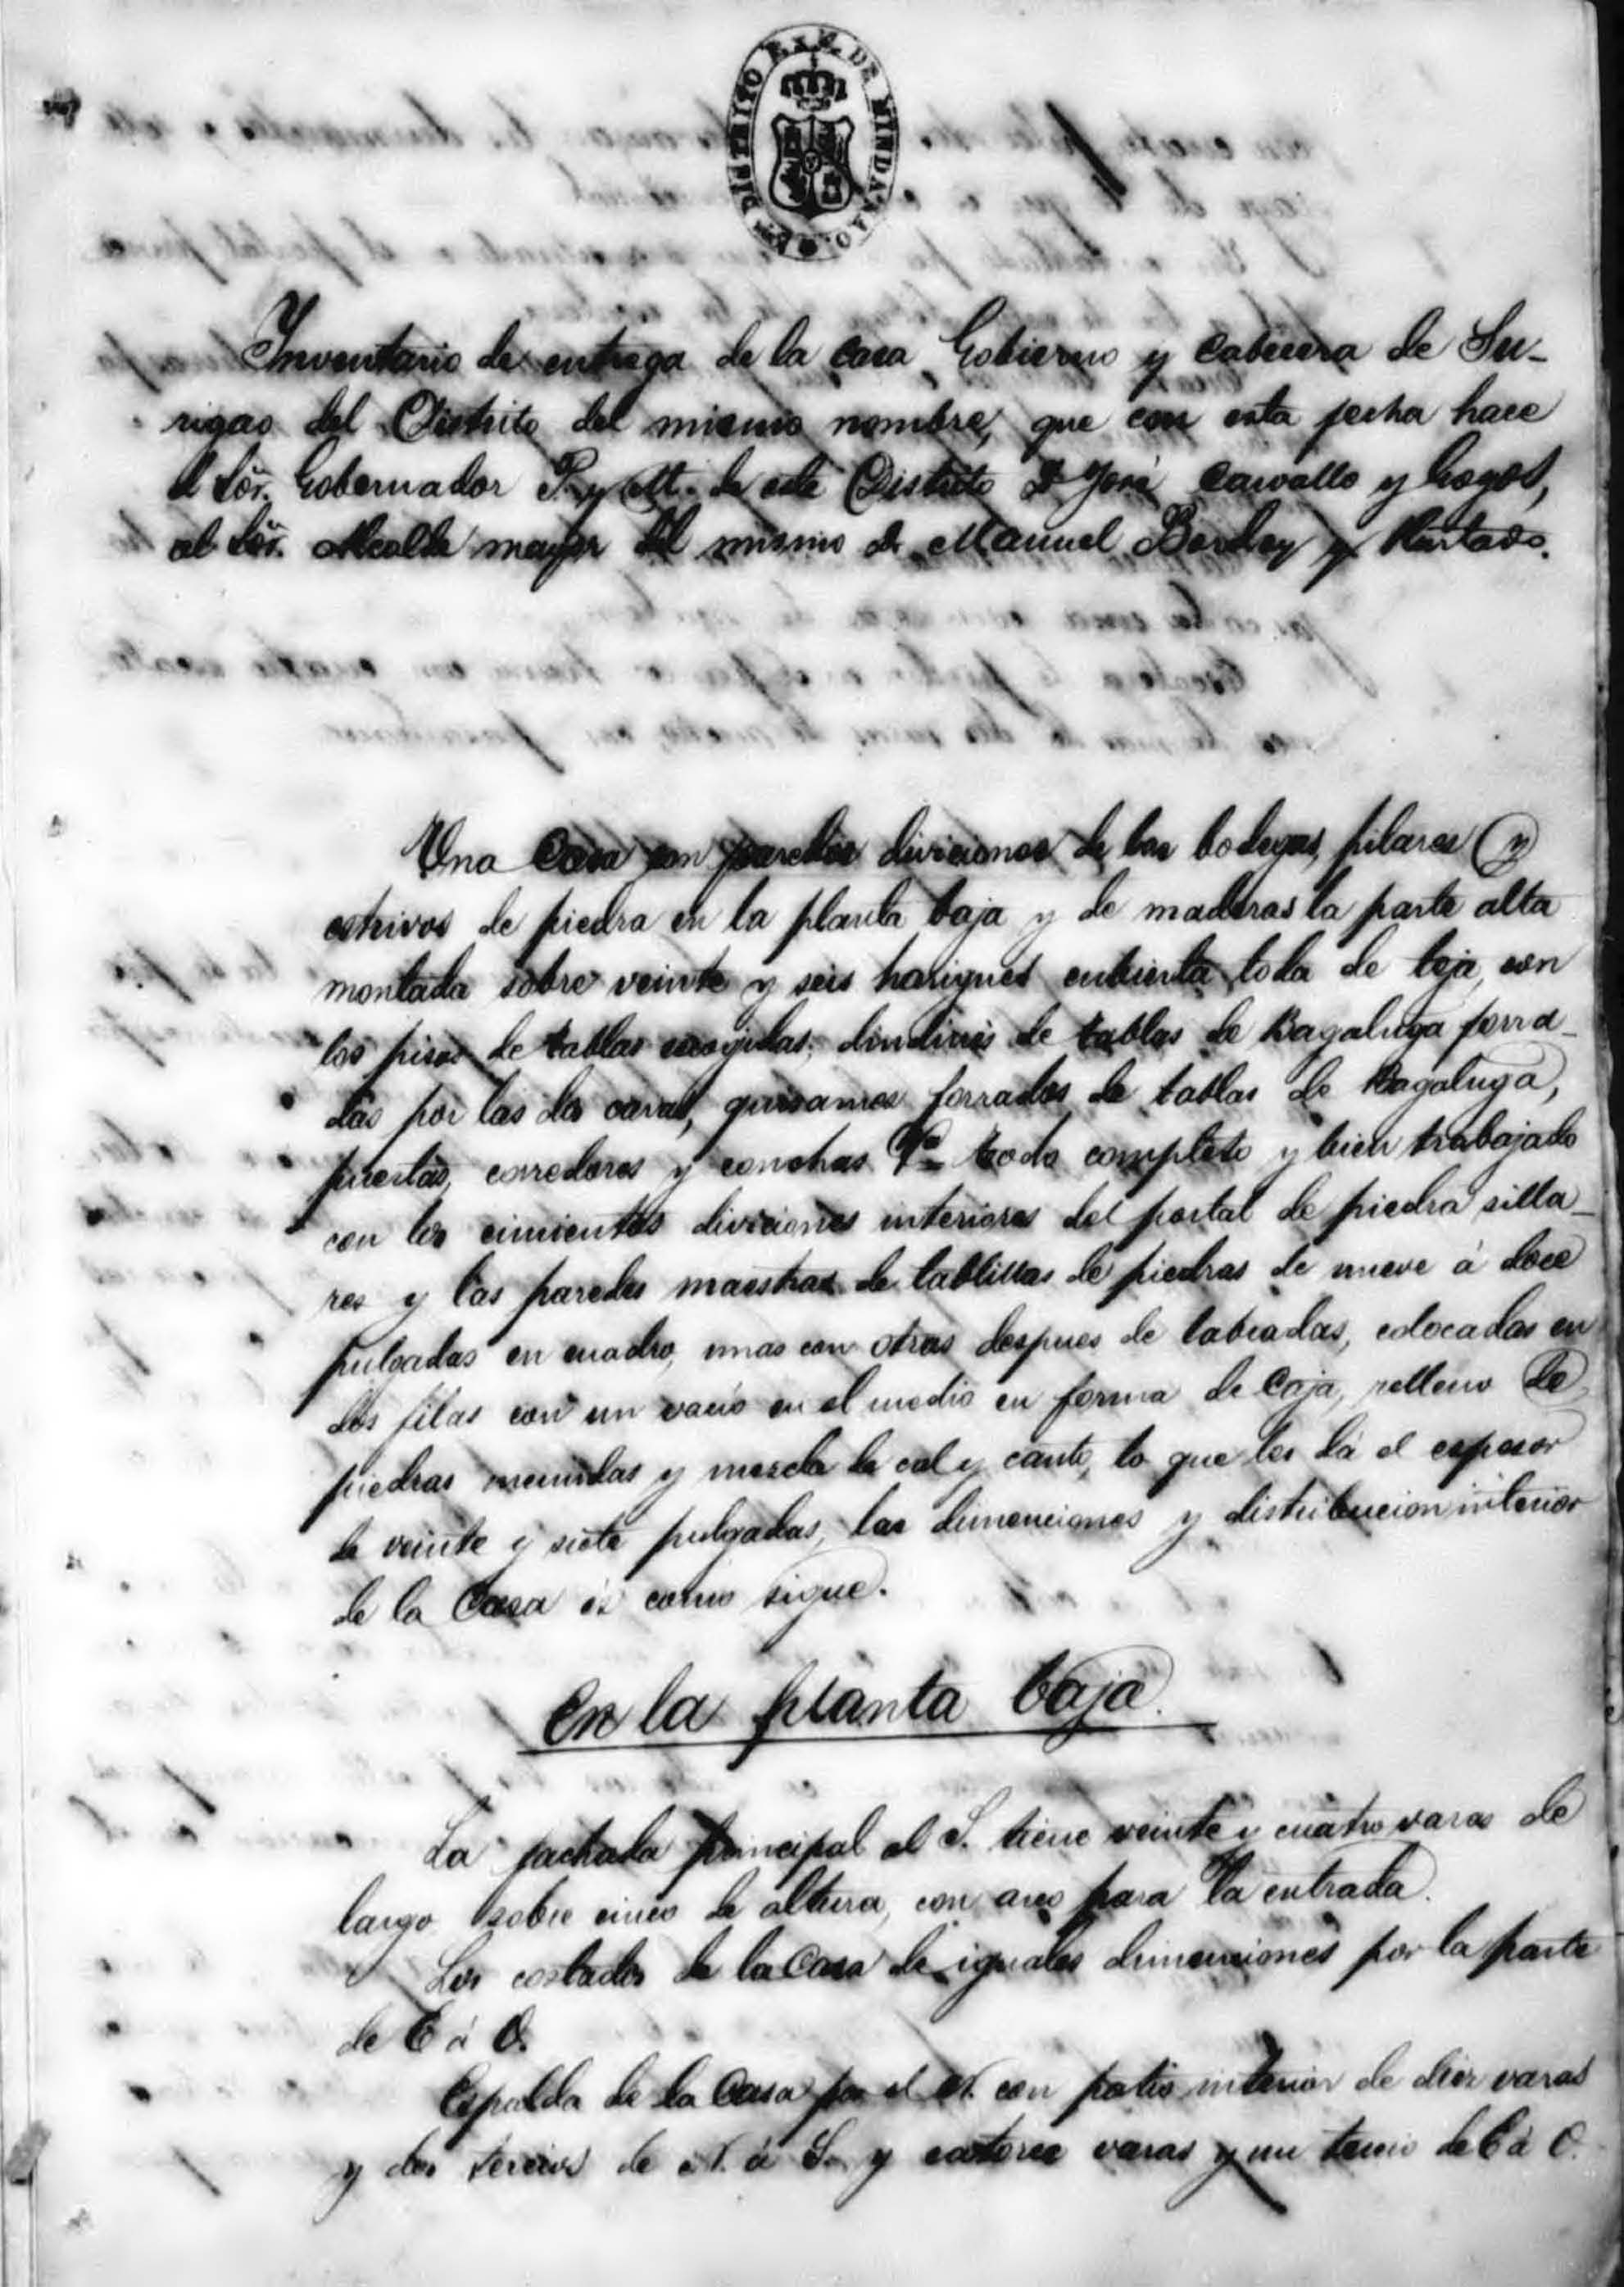 DISTRITO E. X. E. DE MINDANAO
Inventario de entrega de la casa Gobierno y Cabecera de Su-
rigao del Distrito del mismo nombre, que con esta fecha hace
el Sör. Gobernador P. y M. de este Distrito D José Carvallo y
al Sör. Alcalde mayor del mismo D. Manuel y Hurtado.
Una Casa con paredes diviciones de las bodegas, pilares y
estrivos de piedra en la planta baja y de maderas la parte alta
montada sobre veinte y seis harigues cubierta toda de teja, con
los pisos de tablas escogidas, dindines de tablas de Bagaluga forra-
das por las dos caras, quisames forrados de tablas de Bagaluga,
puertas, corredores y conchas todo completo y bien trabajado
con los cimientos diviciones interiores del portal de piedra silla-
res y las paredes maestras de tablillas de piedras de nueve á doce
pulgadas en cuadro, unas con otras despues de labradas, colocadas en
dos filas con un vacio en el medio en forma de Caja, relleno de
piedras menudas y mezcla de cal y canto, lo que les dá el espesor
de veinte y siete pulgadas, las dimenciones y distribucion interior
de la Casa es como sigue.
En la planta baja.
La fachada principal al S. tiene veinte y cuatro varas de
largo sobre cinco de altura, con arco para la entrada.
Los costados de la Casa de iguales dimenciones por la parte
de E á O.
Espalda de la Casa por el N. con patio interior de diez varas
y dos tercios de N. á S. y catorce varas y un tercio de E á O.